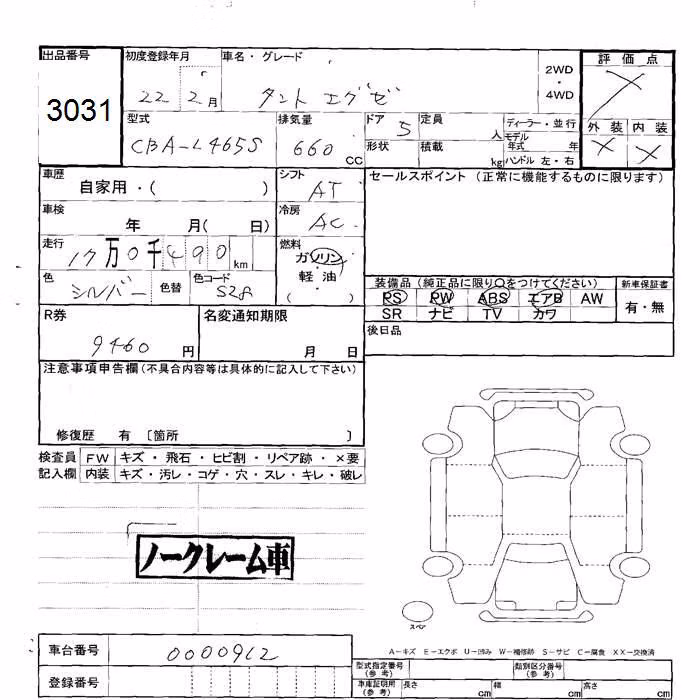 出品番号 初度登録年月 車名・グレード 2WD・4WD 評価点
3031 22 2月 タント エグゼ
型式 排気量 ドア 定員 ディーラー・並行 外装 内装
CBA-L465S 660 CC 5 人 モデル年式 年 × ×
形状 積載 kg ハンドル 左・右
車歴 シフト セールスポイント (正常に機能するものに限ります)
自家用・( ) AT
車検 冷房
年 月( 日) AC
走行 燃料
17万0千490km ガソリン
軽・油
( )
色 色替 色コード
シルバー S28
装備品 (純正品に限り〇をつけてください) 新車保証書
PS PW ABS エアB AW 有・無
SR ナビ TV カワ
R券 名変通知期限 後日品
9460円 月 日
注意事項申告欄(不具合内容等は具体的に記入して下さい)
修復歴 有 〔箇所 〕
検査員 FW キズ・飛石・ヒビ割・リペア跡・×要
記入欄 内装 キズ・汚レ・コゲ・穴・スレ・キレ・破レ
ノークレーム車
スペア
A-キズ E-エクボ U-凹み W-補修跡 S-サビ C-腐食 XX-交換済
車台番号 0000912
型式指定番号(参考) 類別区分番号(参考)
登録番号
車庫証明用(参考) 長さ cm 幅 cm 高さ cm